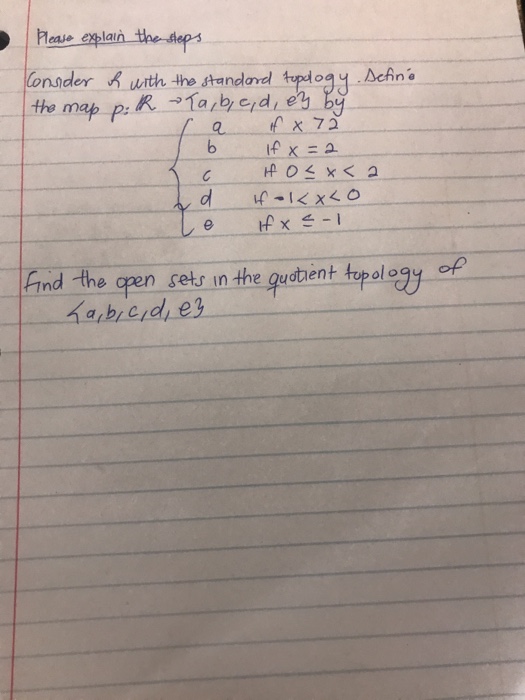 Please explain the steps
Consider R with the standard topology. Define
the map p: R → {a, b, c, d, e} by
a if x > 2
b if x = 2
c if 0 ≤ x < 2
d if -1 < x < 0
e if x ≤ -1
find the open sets in the quotient topology of
{a, b, c, d, e}